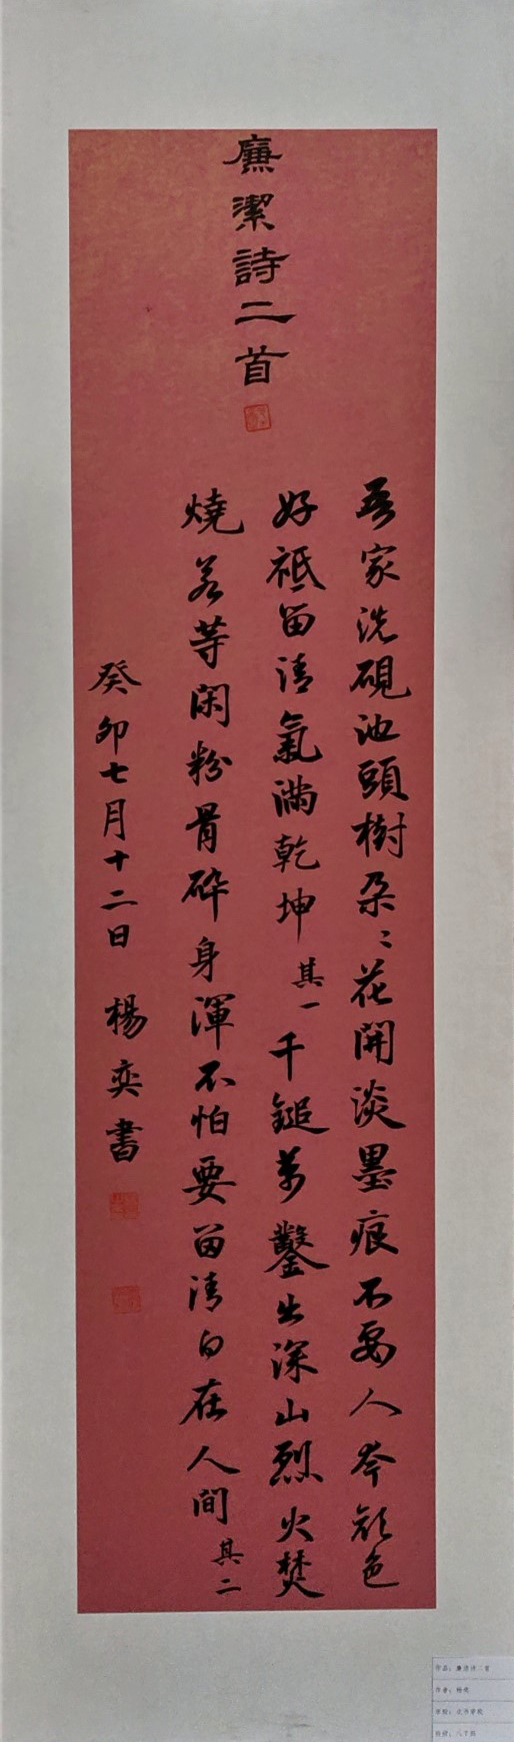 廉潔詩二首
吾家洗硯池頭樹朶〻花開淡墨痕不要人夸顏色
好祗留清氣滿乾坤 其一 千鎚萬鑿出深山烈火焚
燒若等閑粉骨碎身渾不怕要留清白在人間 其二
癸卯七月十二日 楊奕書
作品：廉洁诗二首
作者：杨奕